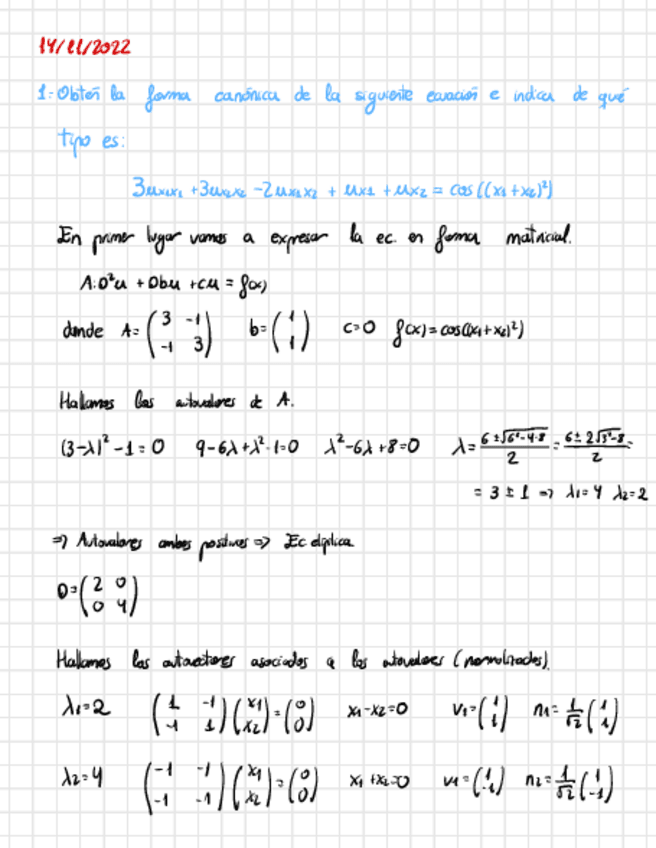 14/11/2022
1. Obtén la forma canónica de la siguiente ecuación e indica de qué
tipo es:
3u_{x1x1} + 3u_{x2x2} - 2u_{x1x2} + u_{x1} + u_{x2} = cos((x1+x2)²)
En primer lugar vamos a expresar la ec. en forma matricial.
A:D²u + Dbu + cu = f(x)
donde A = (3 -1; -1 3) b = (1; 1) c=0 f(x) = cos((x1+x2)²)
Hallamos los autovalores de A.
(3-λ)² - 1 = 0 9-6λ+λ²-1=0 λ²-6λ+8=0 λ = (6±√(6²-4·8))/2 = (6±2√(3²-8))/2 =
= 3 ± 1 ⇒ λ1=4 λ2=2
⇒ Autovalores ambos positivos ⇒ Ec elíptica
D = (2 0; 0 4)
Hallamos los autovectores asociados a los autovalores (normalizados).
λ1=2 (1 -1; -1 1)(x1; x2) = (0; 0) x1-x2=0 v1 = (1; 1) n1 = 1/√2 (1; 1)
λ2=4 (-1 -1; -1 -1)(x1; x2) = (0; 0) x1+x2=0 v1 = (1; -1) n2 = 1/√2 (1; -1)